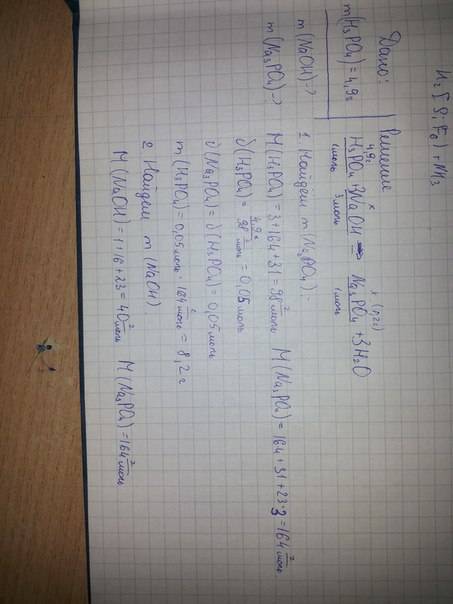 H₂[SiF₆] + NH₃
Дано:
m(H₃PO₄) = 4,9г
m(NaOH) - ?
m(Na₃PO₄) - ?
Решение
4,9г x (г)
H₃PO₄ + 3NaOH → Na₃PO₄ + 3H₂O
1моль 3моль 1моль
1. Найдем m(Na₃PO₄):
M(H₃PO₄) = 3 + 16·4 + 31 = 98 г/моль M(Na₃PO₄) = 16·4 + 31 + 23·3 = 164 г/моль
δ(H₃PO₄) = 4,9г / 98 г/моль = 0,05 моль
δ(Na₃PO₄) = δ(H₃PO₄) = 0,05 моль
m(H₃PO₄) = 0,05 моль · 164 г/моль = 8,2 г
2. Найдем m(NaOH)
M(NaOH) = 1 + 16 + 23 = 40 г/моль M(Na₃PO₄) = 164 г/моль